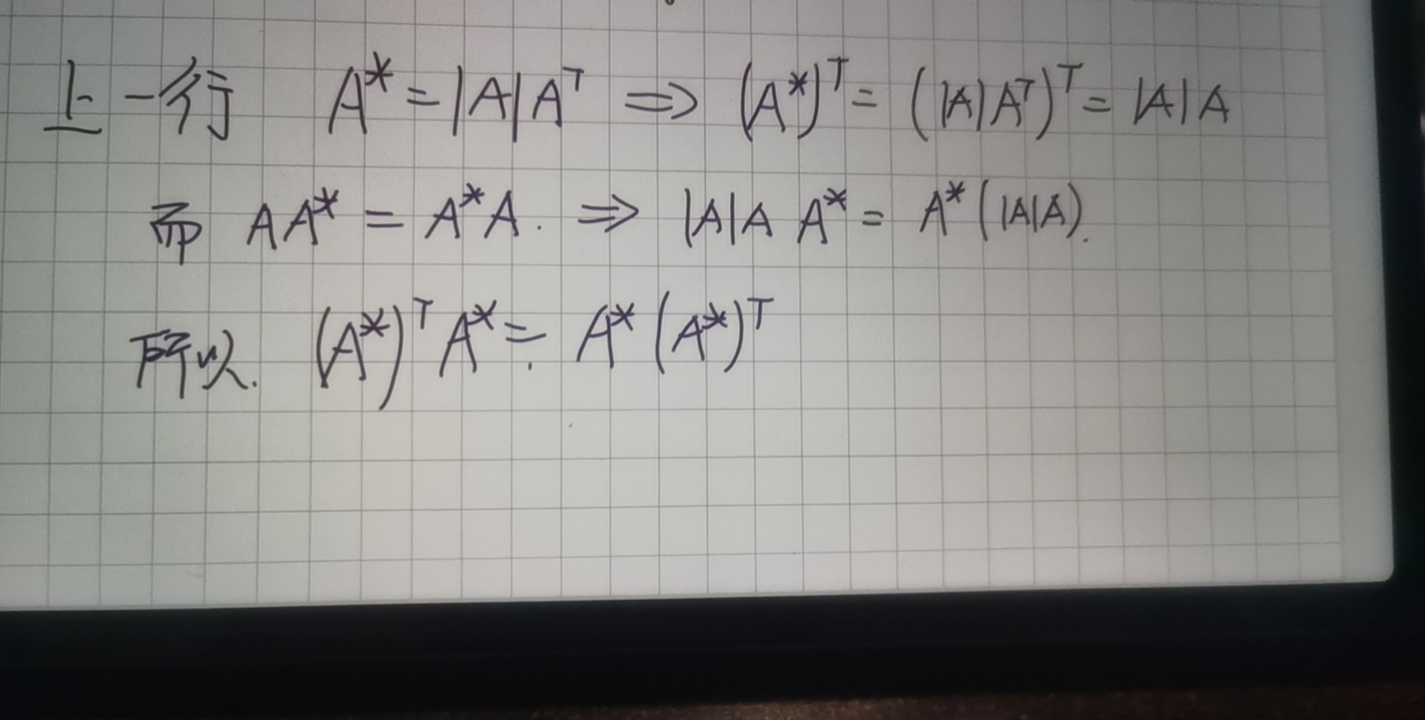 上一行 A* = |A| Aᵀ ⟹ (A*)ᵀ = (|A| Aᵀ)ᵀ = |A| A
而 AA* = A*A. ⟹ |A| A A* = A* (|A|A).
所以. (A*)ᵀ A* = A* (A*)ᵀ